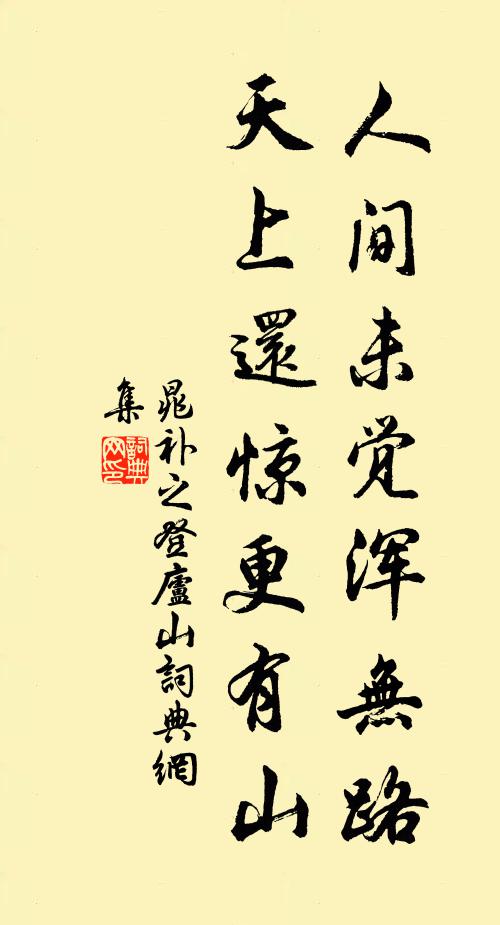 人间未觉浑無路
天上還惊更有山
晁补之登廬山詞典網
集
詞典网印